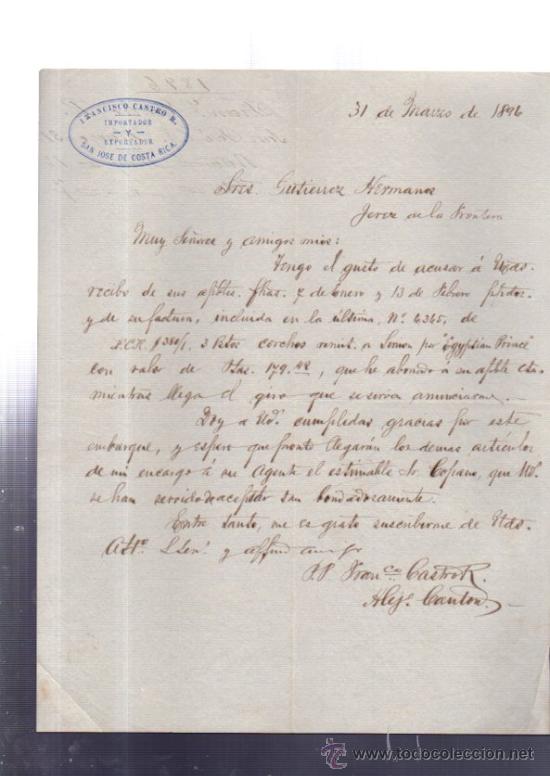 1896
FRANCISCO CASTRO R.
IMPORTADOR
Y
EXPORTADOR
SAN JOSE DE COSTA RICA.
31 de Marzo de 1896
Sres. Gutierrez Hermanos
Jerez de la Frontera
Muy Señores y amigos mios:
Tengo el gusto de acusar á Uds.
recibo de sus 7 de Enero y 13 de Febrero
y de su factura, incluida en la última, Nº 6365, de
3 corchos á por "Egyptian Prince"
con valor de 179. que he abonado á su
mientras llega el giro que se sirven anunciarme.
Doy a Ud. cumplidas gracias por este
embarque, y espero que pronto llegarán los demas artículos
de mi encargo á su Agente el estimable Sr. que Ud.
se han servido aceptar tan bondadosamente.
Entre tanto, me es grato suscribirme de Uds.
y
P.P. Franco Castro R.
Alejo
todocoleccion
www.todocoleccion.net